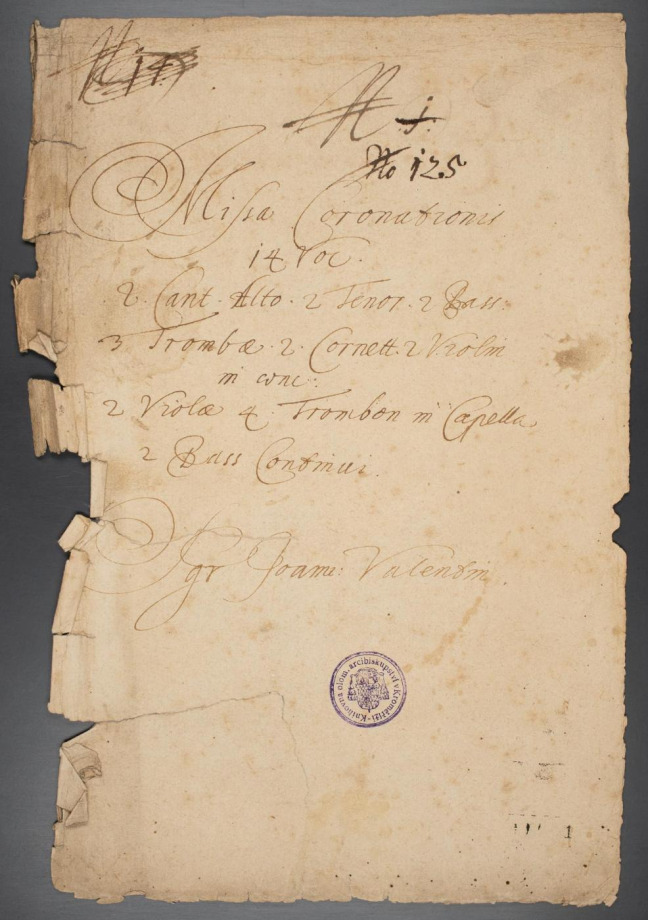 N 14
N j.
No 125
Missa Coronationis
14 Voc.
2. Cant. Alto. 2 Tenor. 2 Bass.
3 Trombæ. 2. Cornett. 2 Violin
in conc:
2 Violæ 4. Trombon in Capella.
2 Bass Continui.
Sgr Joanne: Valentin.
Knihovna olom. arcibiskupství v Kroměříži
1